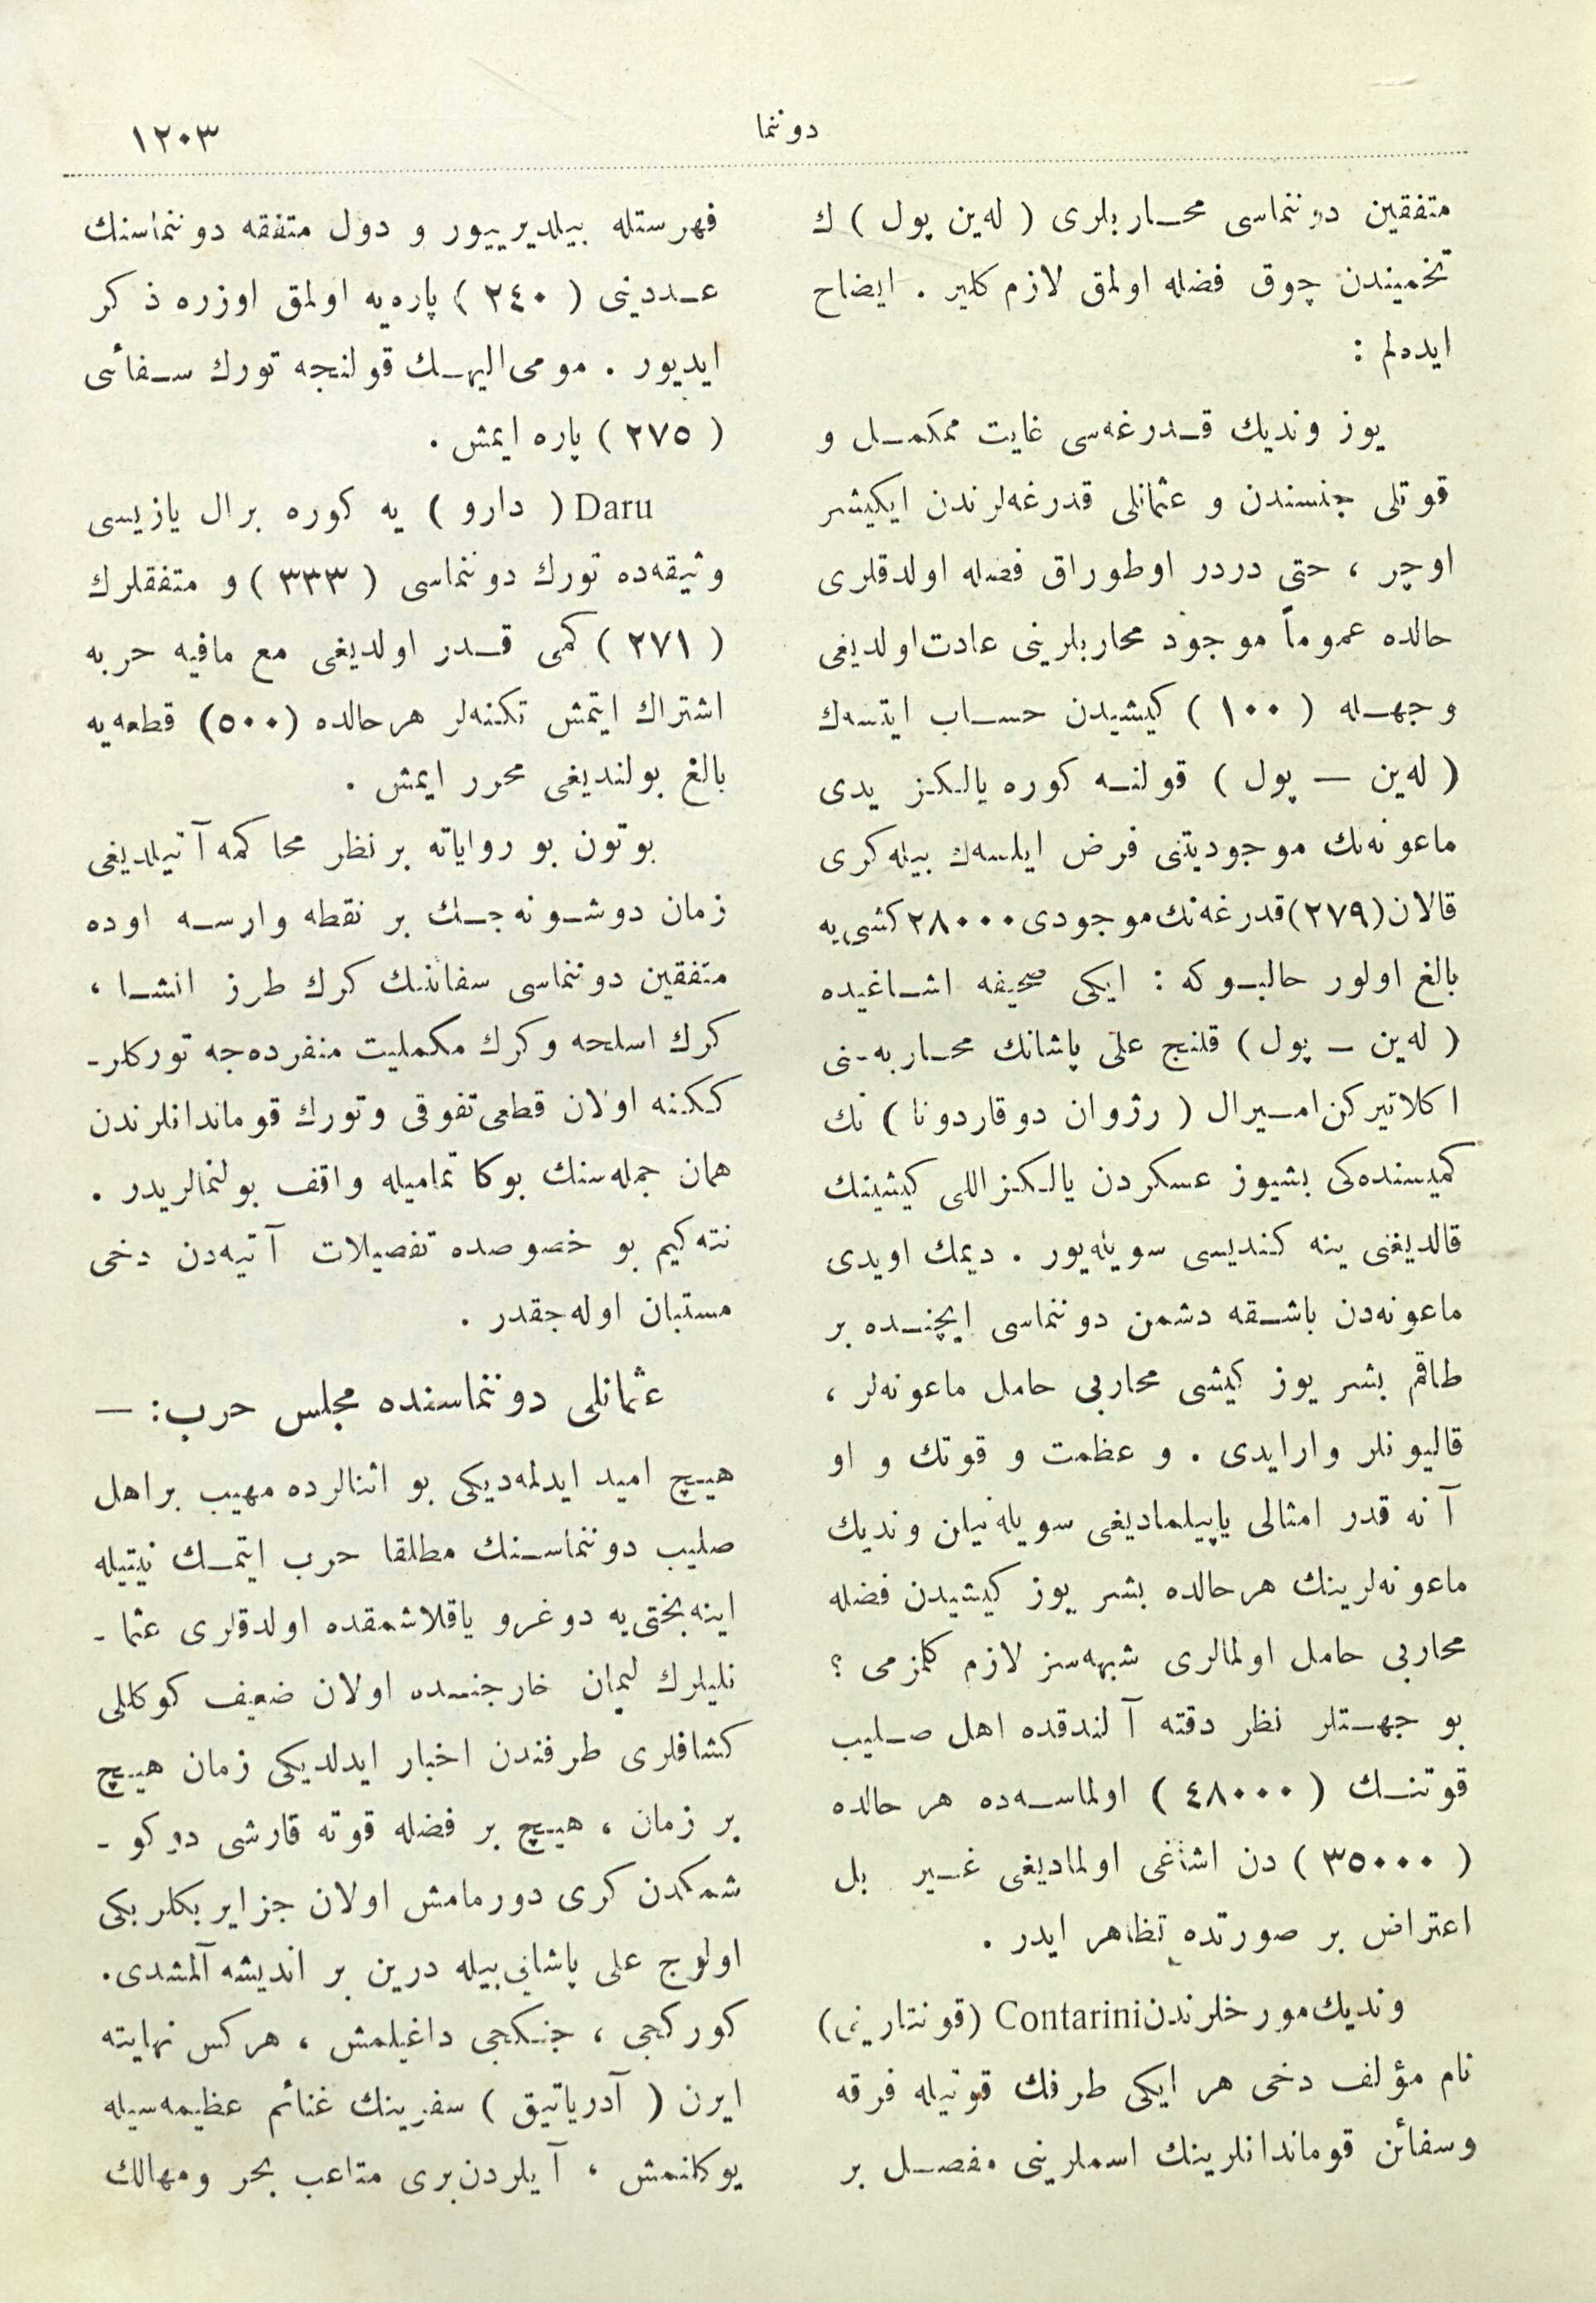 دوننما
١٢٠٣
متفقین دوننماسی محاربلری ( لەین پول ) ك
تخمیندن چوق فضله اولمق لازم كلیر . ایضاح
ایدەلم :
یوز وندیك قدرغەسی غایت مكمل و
قوتلی جنسندن و عثمانلی قدرغەلرندن ایكیشر
اوچر ، حتی دردر اوطوراق فضله اولدقلری
حالده عموماً موجود محاربلرینی عادت اولدیغی
وجهله ( ١٠٠ ) كیشیدن حساب ایتسەك
( لەین — پول ) قولنه كوره یالكز یدی
ماعونەنك موجودیتنی فرض ایلسەك بیله كری
قالان (٢٧٩) قدرغەنك موجودی ٢٨٠٠٠ كشی یه
بالغ اولور حالبوكه : ایكی صحیفه اشاغیده
( لەین — پول ) قلنج علی پاشانك محاربەنی
اكلاتیركن امیرال ( رژوان دوقاردونا ) نك
كمیسندەكی بشیوز عسكردن یالكز اللی كیشینك
قالدیغنی ینه كندیسی سویلەیور . دیمك اویدی
ماعونەدن باشقه دشمن دوننماسی ایچنده بر
طاقم بشر یوز كیشی محاربی حامل ماعونەلر ،
قالیونلر وارایدی . و عظمت و قوتك و او
آنه قدر امثالی یاپیلمادیغی سویلەنیلن وندیك
ماعونەلرینك هرحالده بشر یوز كیشیدن فضله
محاربی حامل اولمالری شبهەسز لازم كلمزمی ؟
بو جهتلر نظر دقته آلندقده اهل صلیب
قوتنك ( ٤٨٠٠٠ ) اولماسەده هر حالده
( ٣٥٠٠٠ ) دن اشاغی اولمادیغی غیر بل
اعتراض بر صورتده تظاهر ایدر .
وندیك مورخلرندن Contarini (قونتارینی)
نام مؤلف دخی هر ایكی طرفك قوتیله فرقه
وسفائن قوماندانلرینك اسملرینی مفصل بر
فهرستله بیلدیرییور و دول متفقه دوننماسنك
عددینی ( ٢٤٠ ) پارەیه اولمق اوزره ذكر
ایدیور . مومی الیهك قولنجه تورك سفائنی
( ٢٧٥ ) پاره ایمش .
Daru ( دارو ) یه كوره برال یازیسی
وثیقەده تورك دوننماسی ( ٣٣٣ ) و متفقلرك
( ٢٧١ ) كمی قدر اولدیغی مع مافیه حربه
اشتراك ایتمش تكنەلر هرحالده (٥٠٠) قطعەیه
بالغ بولندیغی محرر ایمش .
بوتون بو روایاته بر نظر محاكمه آتیلدیغی
زمان دوشونەجك بر نقطه وارسه اوده
متفقین دوننماسی سفاننك كرك طرز انشا ،
كرك اسلحه وكرك مكملیت منفردەجه توركلر-
ككنه اولان قطعی تفوقی وتورك قوماندانلرندن
همان جملەسنك بوكا تمامیله واقف بولنمالریدر .
نتەكیم بو خصوصده تفصیلات آتیەدن دخی
مستبان اولەجقدر .
عثمانلی دوننماسنده مجلس حرب : —
هیچ امید ایدلمەدیكی بو اثنالرده مهیب براهل
صلیب دوننماسنك مطلقا حرب ایتمك نیتیله
اینەبختی یه دوغرو یاقلاشمقده اولدقلری عثما -
نلیلرك لیمان خارجنده اولان ضعیف كوكللی
كشافلری طرفندن اخبار ایدلدیكی زمان هیچ
بر زمان ، هیچ بر فضله قوته قارشی دوكو -
شمكدن كری دورمامش اولان جزایر بكلربكی
اولوج علی پاشانی بیله درین بر اندیشه آلمشدی.
كوركجی ، جنكجی داغیلمش ، هركس نهایته
ایرن ( آدریاتیق ) سفرینك غنائم عظیمەسیله
یوكلنمش ، آیلردن بری متاعب بحر ومهالك